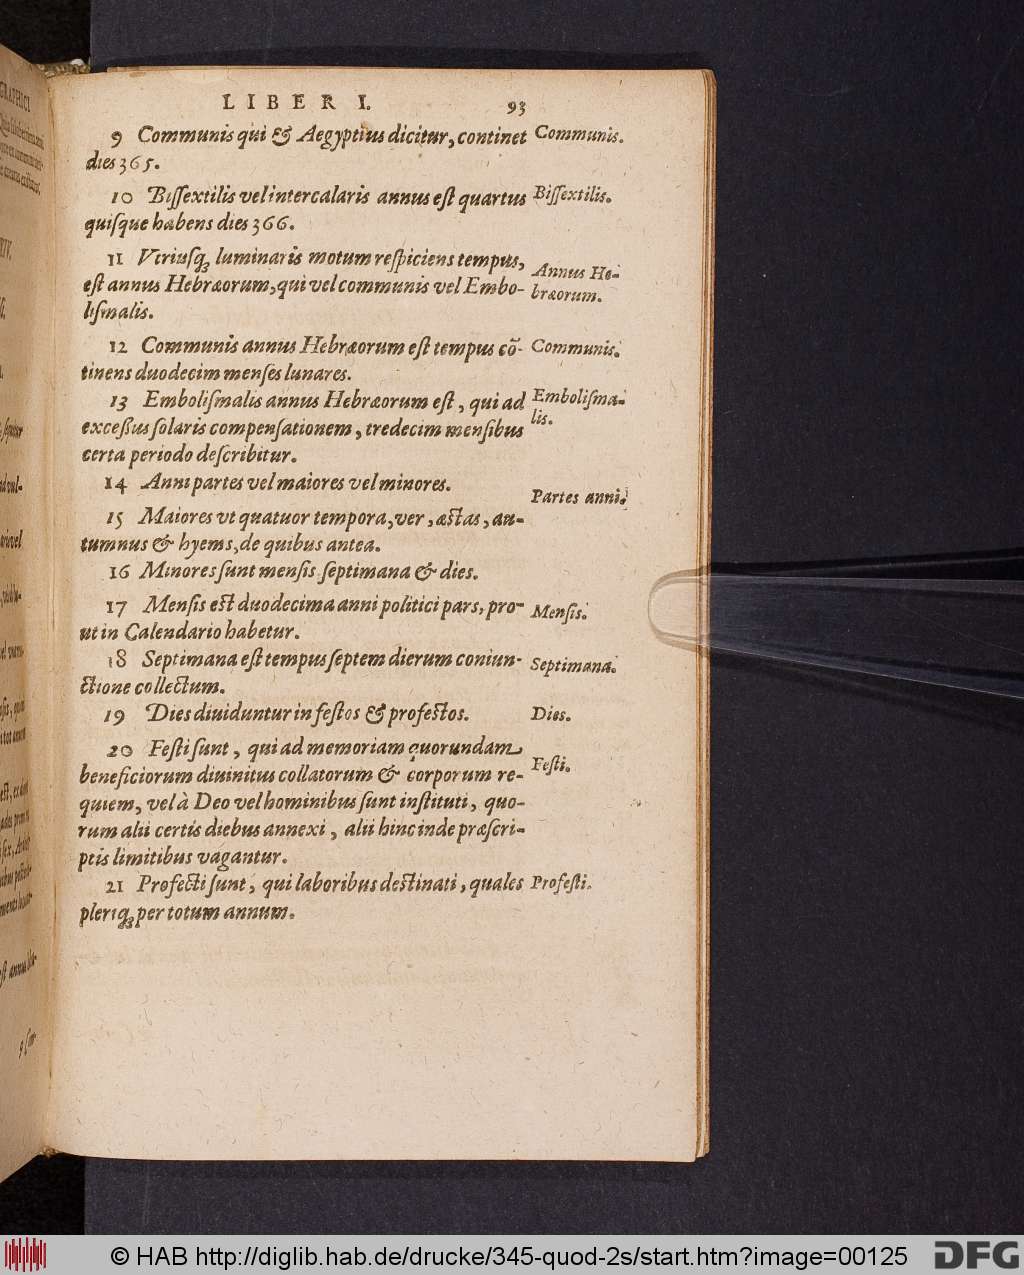 LIBER I. 93
9 Communis qui & Aegyptius dicitur, continet
dies 365.
Communis.
10 Bissextilis vel intercalaris annus est quartus
quisque habens dies 366.
Bissextilis.
11 Vtriusq; luminaris motum respiciens tempus,
est annus Hebræorum, qui vel communis vel Embo-
lismalis.
Annus He-
bræorum.
12 Communis annus Hebræorum est tempus cō-
tinens duodecim menses lunares.
Communis.
13 Embolismalis annus Hebræorum est, qui ad
excessus solaris compensationem, tredecim mensibus
certa periodo describitur.
Embolisma-
lis.
14 Anni partes vel maiores vel minores.
Partes anni.
15 Maiores vt quatuor tempora, ver, æstas, au-
tumnus & hyems, de quibus antea.
16 Minores sunt mensis septimana & dies.
17 Mensis est duodecima anni politici pars, pro-
ut in Calendario habetur.
Mensis.
18 Septimana est tempus septem dierum coniun-
ctione collectum.
Septimana.
19 Dies diuiduntur in festos & profestos.
Dies.
20 Festi sunt, qui ad memoriam quorundam
beneficiorum diuinitus collatorum & corporum re-
quiem, vel à Deo vel hominibus sunt instituti, quo-
rum alii certis diebus annexi, alii hinc inde præscri-
ptis limitibus vagantur.
Festi.
21 Profecti sunt, qui laboribus destinati, quales
pleriq; per totum annum.
Profesti.
© HAB http://diglib.hab.de/drucke/345-quod-2s/start.htm?image=00125
DFG